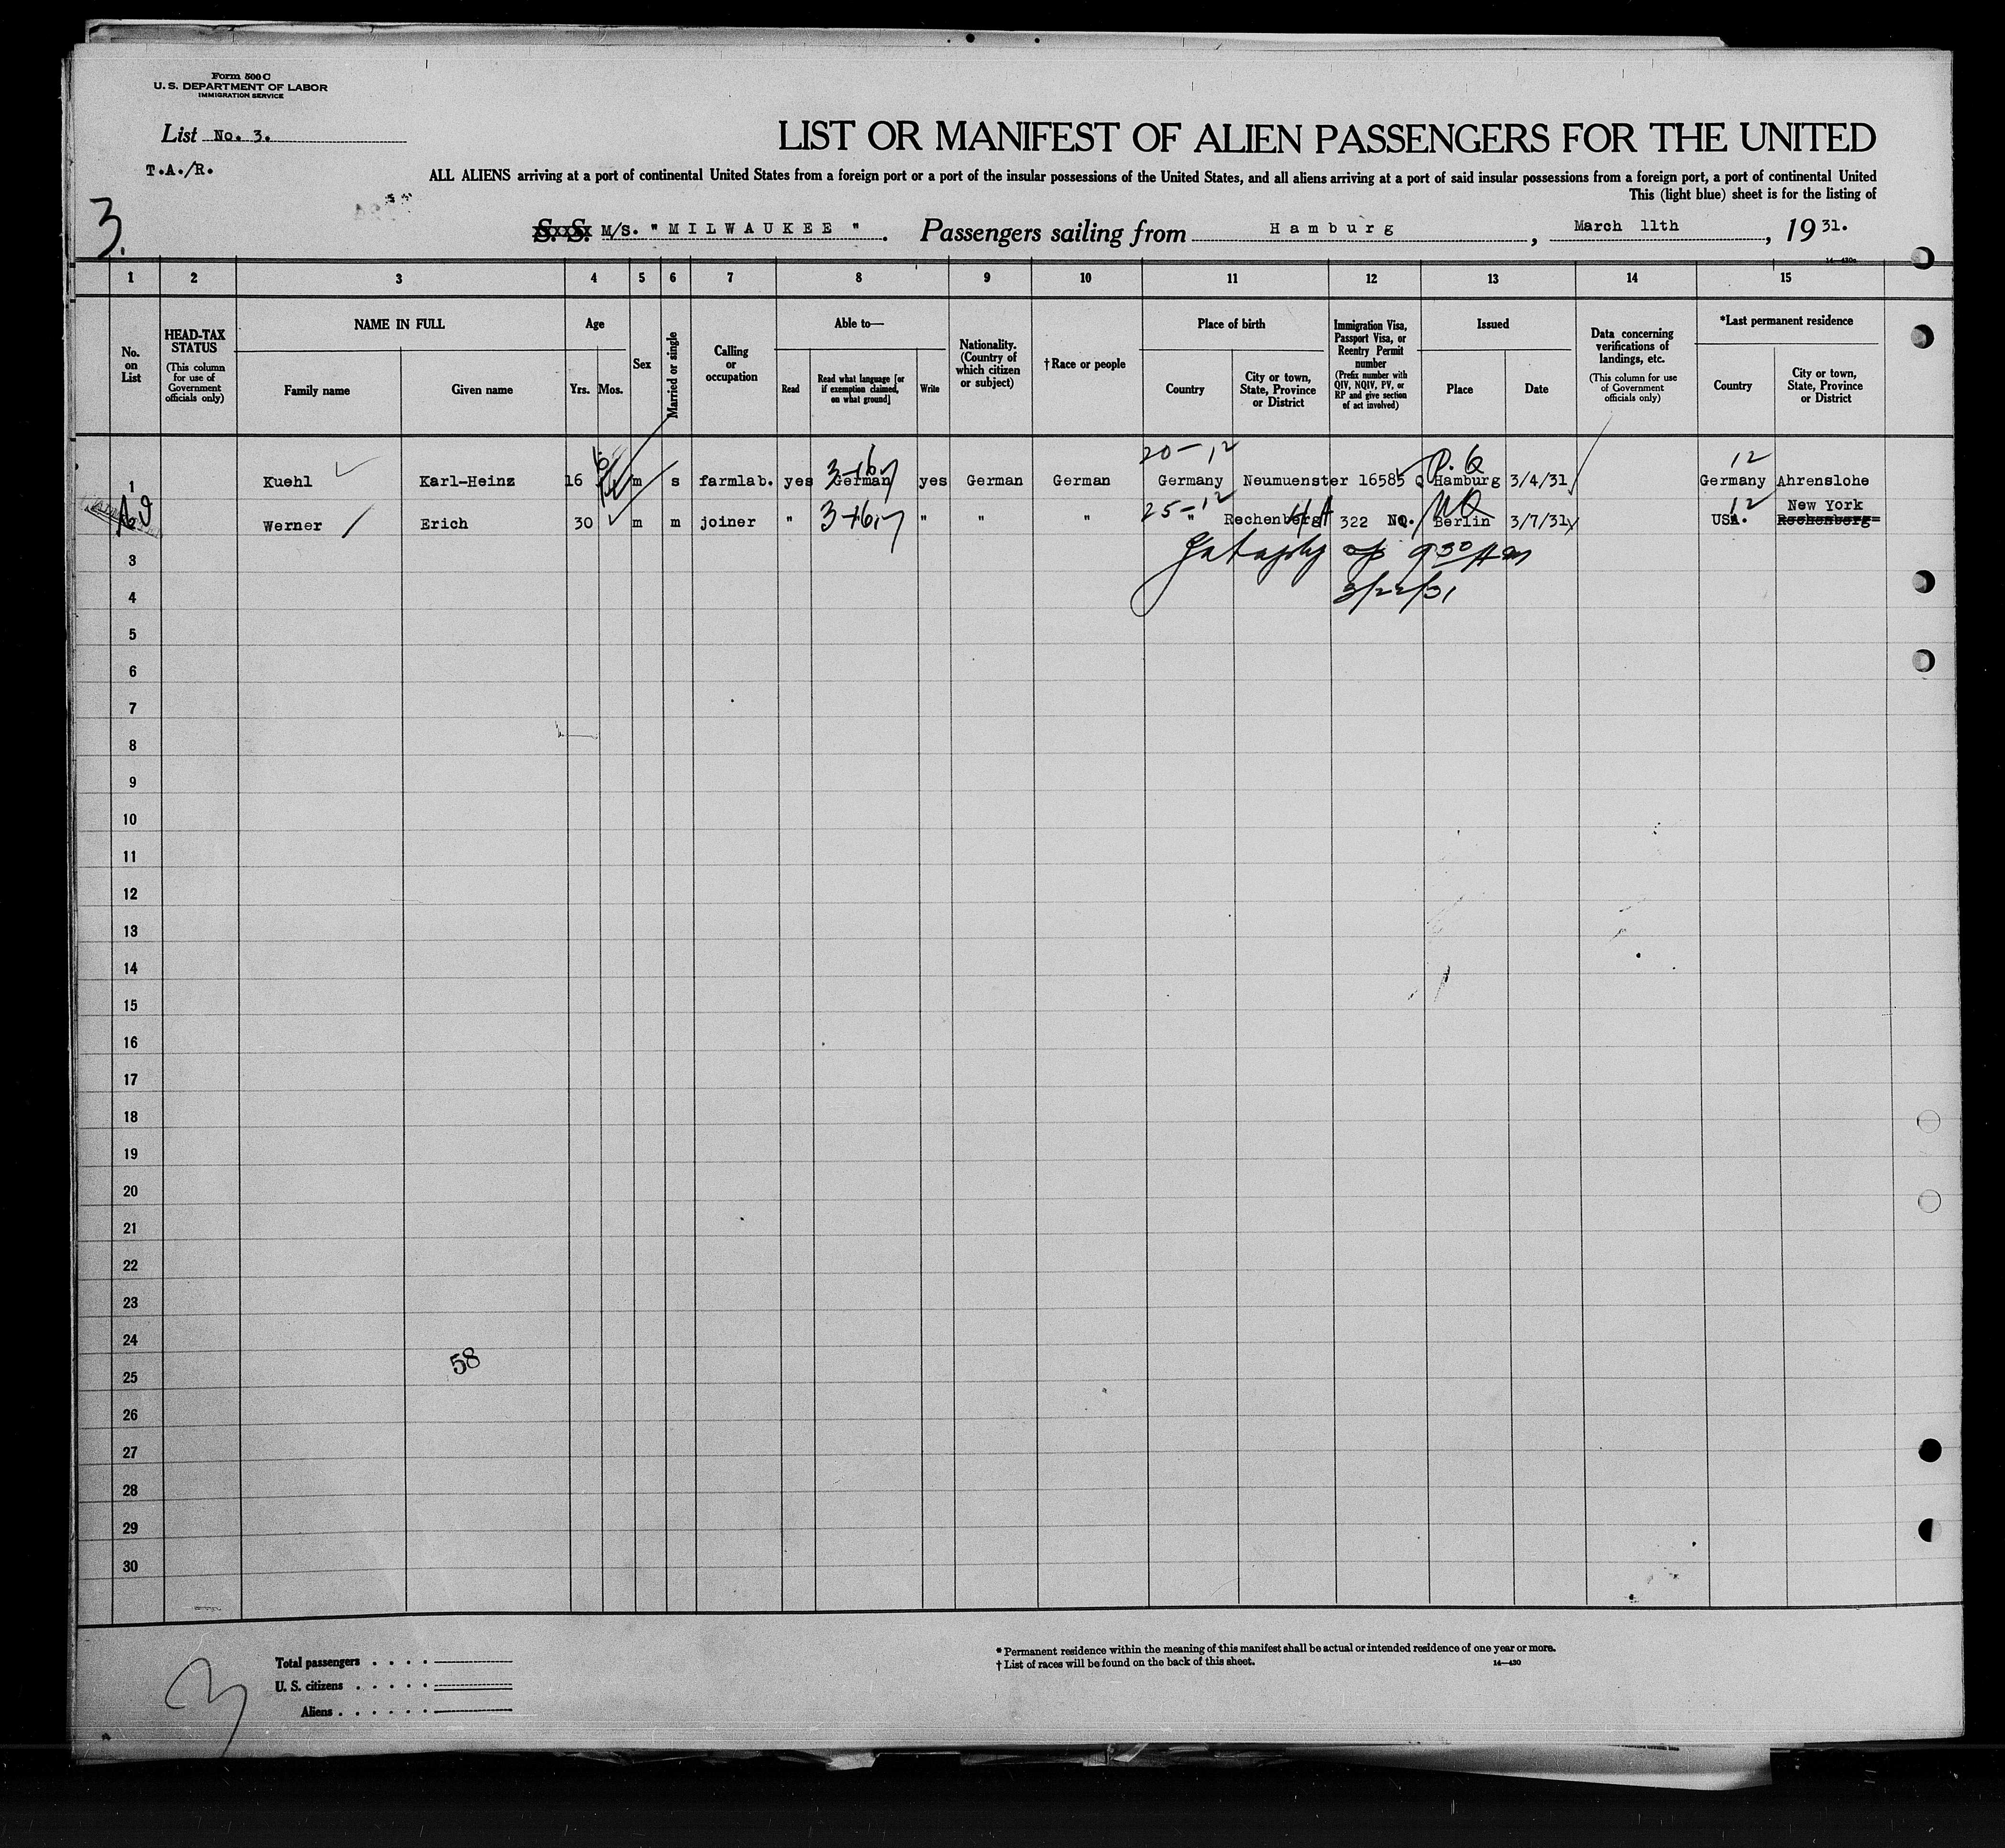 Form 500 C
U. S. DEPARTMENT OF LABOR
IMMIGRATION SERVICE
List No. 3.
T.A./R.
3.
LIST OR MANIFEST OF ALIEN PASSENGERS FOR THE UNITED
ALL ALIENS arriving at a port of continental United States from a foreign port or a port of the insular possessions of the United States, and all aliens arriving at a port of said insular possessions from a foreign port, a port of continental United
This (light blue) sheet is for the listing of
S. S. M/S. "MILWAUKEE". Passengers sailing from Hamburg, March 11th, 19 31.
14—430a
1 2 3 4 5 6 7 8 9 10 11 12 13 14 15
No. on List
HEAD-TAX STATUS
(This column for use of Government officials only)
NAME IN FULL
Family name
Given name
Age
Yrs.
Mos.
Sex
Married or single
Calling or occupation
Able to—
Read
Read what language [or if exemption claimed, on what ground]
Write
Nationality. (Country of which citizen or subject)
† Race or people
Place of birth
Country
City or town, State, Province or District
Immigration Visa, Passport Visa, or Reentry Permit number
(Prefix number with QIV, NQIV, PV, or RP and give section of act involved)
Issued
Place
Date
Data concerning verifications of landings, etc.
(This column for use of Government officials only)
*Last permanent residence
Country
City or town, State, Province or District
20-12 P. Q 12
1 Kuehl Karl-Heinz 16 m s farmlab. yes German yes German German Germany Neumuenster 16585 Q Hamburg 3/4/31 Germany Ahrenslohe
25-12 NQ 12 New York
2 Werner Erich 30 m m joiner " " " " " Rechenberg 322 NQ. Berlin 3/7/31 USA. Rechenberg
3 9 30 AM
4 3/22/31
5
6
7
8
9
10
11
12
13
14
15
16
17
18
19
20
21
22
23
24
58
25
26
27
28
29
30
Total passengers
U. S. citizens
Aliens
3
* Permanent residence within the meaning of this manifest shall be actual or intended residence of one year or more.
† List of races will be found on the back of this sheet. 14—430